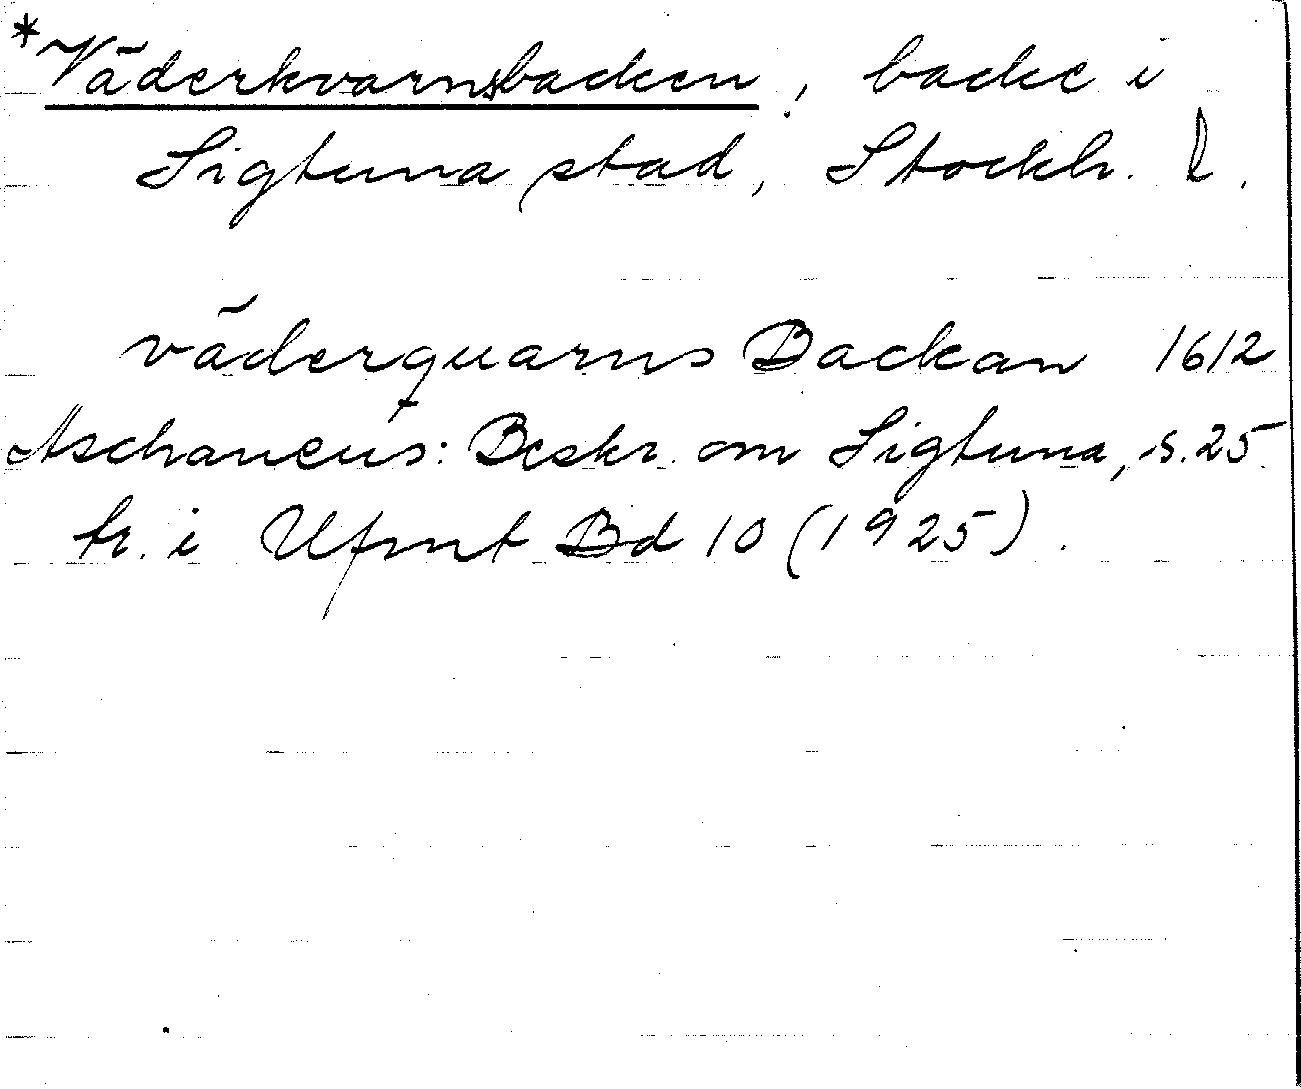 *Väderkvarnsbacken, backe i
Sigtuna stad, Stockh. l.
väderquarns Backan 1612
Aschaneus: Beskr. om Sigtuna, s. 25
tr. i Ufmt Bd 10 (1925).